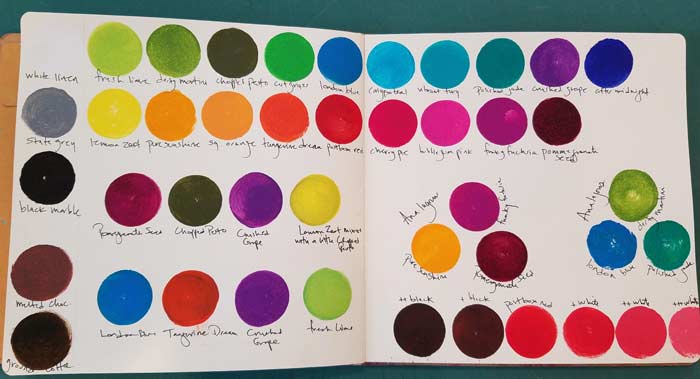 white linen
fresh lime dirty martini chopped pesto cut grass london blue
calypso teal vibrant turq polished jade crushed grape after midnight
slate grey
lemon zest pure sunshine sq orange tangerine dream postbox red
cherry pie bubblegum pink funky fuchsia pomegranate
seed
black marble
Pomegranate Seed Chopped Pesto Crushed
Grape Lemon Zest mixed
with a little chopped
Pesto
Analogous
funky fuchsia
pure sunshine
pomegranate seed
Analogous
dirty martini
london blue
polished jade
melted choc.
London Blue Tangerine Dream Crushed
Grape fresh lime
++ black + black postbox red + white ++ white +++ white
ground coffee